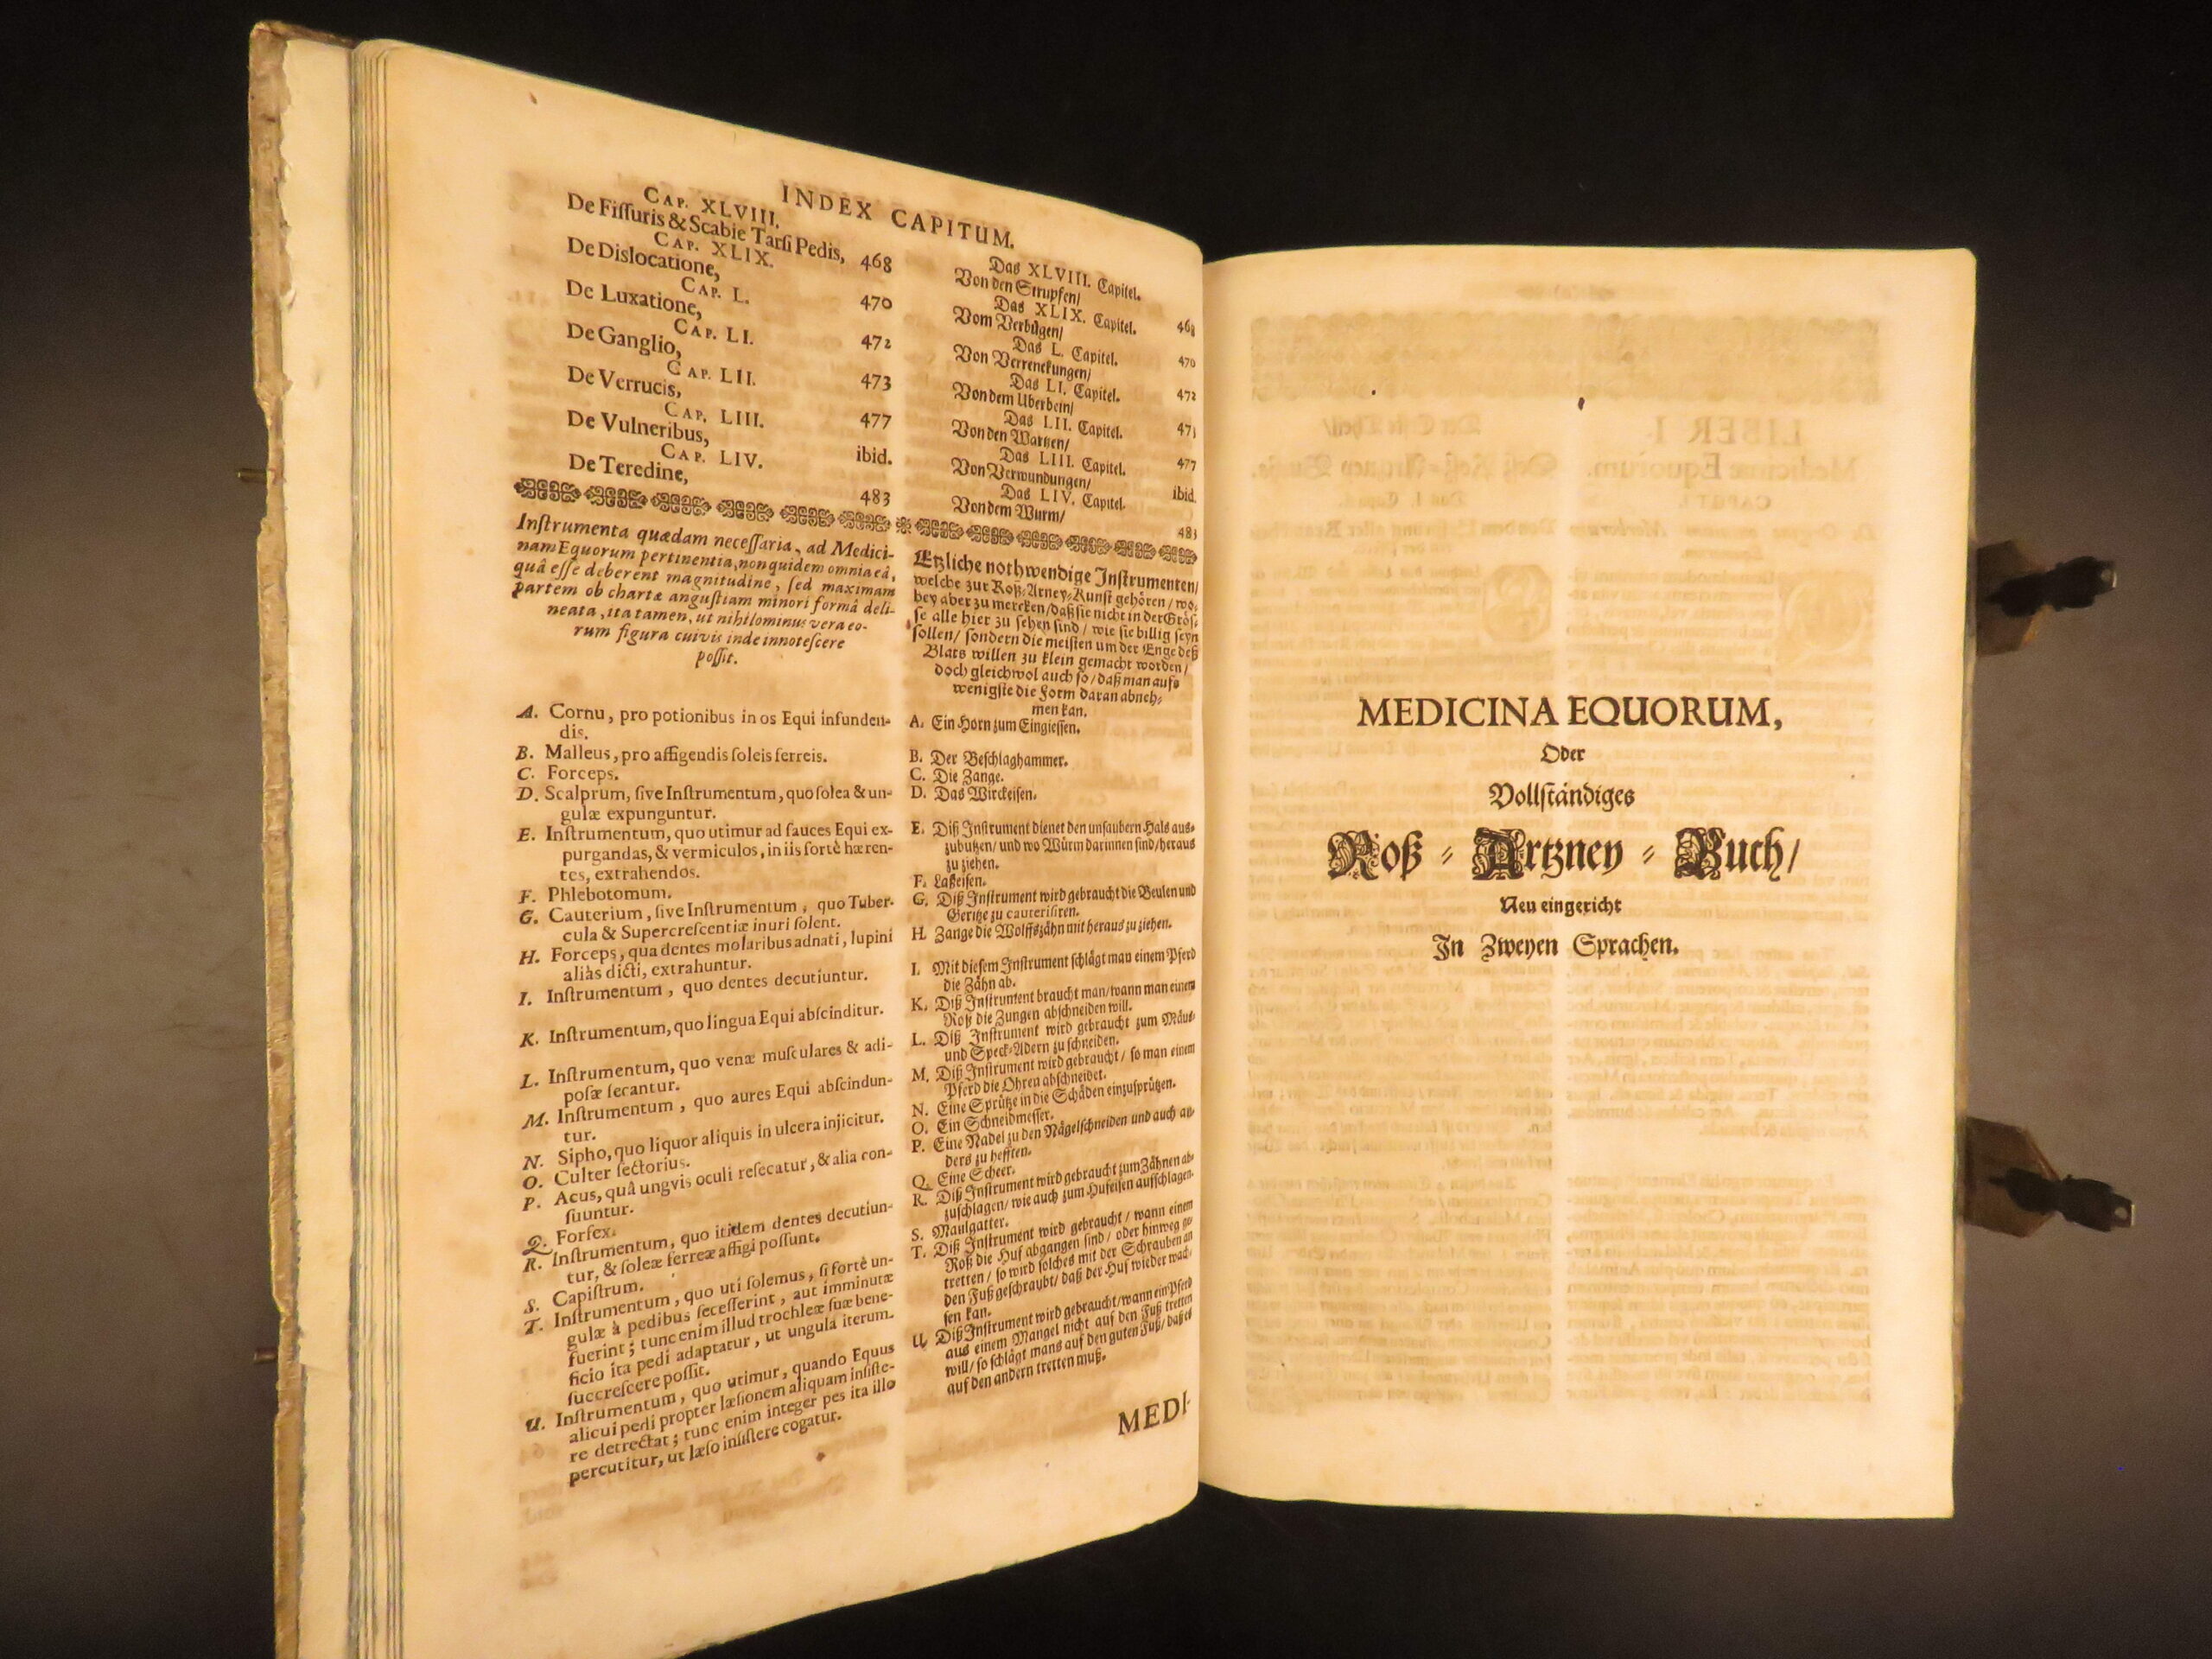 INDEX CAPITUM.
CAP. XLVIII.
De Fiſſuris & Scabie Tarſi Pedis, 468
CAP. XLIX.
De Dislocatione, 470
CAP. L.
De Luxatione, 472
CAP. LI.
De Ganglio, 473
CAP. LII.
De Verrucis, 477
CAP. LIII.
De Vulneribus, ibid.
CAP. LIV.
De Teredine, 483
Das XLVIII. Capitel.
Von den Strupfen/ 468
Das XLIX. Capitel.
Vom Verbügen/ 470
Das L. Capitel.
Von Verrenckungen/ 472
Das LI. Capitel.
Von dem Uberbein/ 473
Das LII. Capitel.
Von den Wartzen/ 477
Das LIII. Capitel.
Von Verwundungen/ ibid.
Das LIV. Capitel.
Von dem Wurm/ 483
Inſtrumenta quædam neceſſaria, ad Medici-
nam Equorum pertinentia, non quidem omnia eâ,
quâ eſſe deberent magnitudine, ſed maximam
partem ob chartæ anguſtiam minori formâ deli-
neata, ita tamen, ut nihilominus vera eo-
rum figura cuivis inde innoteſcere
poſſit.
A. Cornu, pro potionibus in os Equi infunden-
dis.
B. Malleus, pro affigendis ſoleis ferreis.
C. Forceps.
D. Scalprum, ſive Inſtrumentum, quo ſolea & un-
gulæ expunguntur.
E. Inſtrumentum, quo utimur ad fauces Equi ex-
purgandas, & vermiculos, in iis fortè hæren-
tes, extrahendos.
F. Phlebotomum.
G. Cauterium, ſive Inſtrumentum, quo Tuber-
cula & Supercreſcentiæ inuri ſolent.
H. Forceps, qua dentes molaribus adnati, lupini
aliàs dicti, extrahuntur.
I. Inſtrumentum, quo dentes decutiuntur.
K. Inſtrumentum, quo lingua Equi abſcinditur.
L. Inſtrumentum, quo venæ muſculares & adi-
poſæ ſecantur.
M. Inſtrumentum, quo aures Equi abſcindun-
tur.
N. Sipho, quo liquor aliquis in ulcera injicitur.
O. Culter ſectorius.
P. Acus, quâ ungvis oculi reſecatur, & alia con-
ſuuntur.
Q. Forfex.
R. Inſtrumentum, quo itidem dentes decutiun-
tur, & ſoleæ ferreæ affigi poſſunt.
S. Capiſtrum.
T. Inſtrumentum, quo uti ſolemus, ſi fortè un-
gulæ à pedibus ſeceſſerint, aut imminutæ
fuerint; tunc enim illud trochleæ ſuæ bene-
ficio ita pedi adaptatur, ut ungula iterum
ſuccreſcere poſſit.
U. Inſtrumentum, quo utimur, quando Equus
alicui pedi propter læſionem aliquam inſiſte-
re detrectat; tunc enim integer pes ita illo
percutitur, ut læſo inſiſtere cogatur.
Etzliche nothwendige Inſtrumenten/
welche zur Roß-Artney-Kunſt gehören / wo-
bey aber zu mercken/ daß ſie nicht in der Gröſ-
ſe alle hier zu ſehen ſind / wie ſie billig ſeyn
ſollen/ ſondern die meiſten um der Enge deß
Blats willen zu klein gemacht worden/
doch gleichwol auch ſo/ daß man aufs
wenigſte die Form daran abneh-
men kan.
A. Ein Horn zum Eingieſſen.
B. Der Beſchlaghammer.
C. Die Zange.
D. Das Wirckeiſen.
E. Diß Inſtrument dienet den unſaubern Hals aus-
zubutzen/ und wo Würm darinnen ſind/ heraus
zu ziehen.
F. Laßeiſen.
G. Diß Inſtrument wird gebraucht die Beulen und
Geritze zu cauteriſiren.
H. Zange die Wolffszähn mit heraus zu ziehen.
I. Mit dieſem Inſtrument ſchlägt man einem Pferd
die Zähn ab.
K. Diß Inſtrument braucht man/ wann man einem
Roß die Zungen abſchneiden will.
L. Diß Inſtrument wird gebraucht zum Mäus-
und Speck-Adern zu ſchneiden.
M. Diß Inſtrument wird gebraucht/ ſo man einem
Pferd die Ohren abſchneidet.
N. Eine Sprütze in die Schäden einzuſprützen.
O. Ein Schneidmeſſer.
P. Eine Nadel zu den Nägelſchneiden und auch an-
ders zu hefften.
Q. Eine Scheer.
R. Diß Inſtrument wird gebraucht zum Zähnen ab-
zuſchlagen/ wie auch zum Hufeiſen aufſchlagen.
S. Maulgatter.
T. Diß Inſtrument wird gebraucht/ wann einem
Roß die Huf abgangen ſind/ oder hinweg ge-
tretten/ ſo wird ſolches mit der Schrauben an
den Fuß geſchraubt/ daß der Huf wieder wach-
ſen kan.
U. Diß Inſtrument wird gebraucht/ wann ein Pferd
aus einem Mangel nicht auf den Fuß tretten
will/ ſo ſchlägt mans auf den guten Fuß/ daß es
auf den andern tretten muß.
MEDI-
MEDICINA EQUORUM,
Oder
Vollſtändiges
Roß-Artzney-Buch/
Neu eingericht
In Zweyen Sprachen.